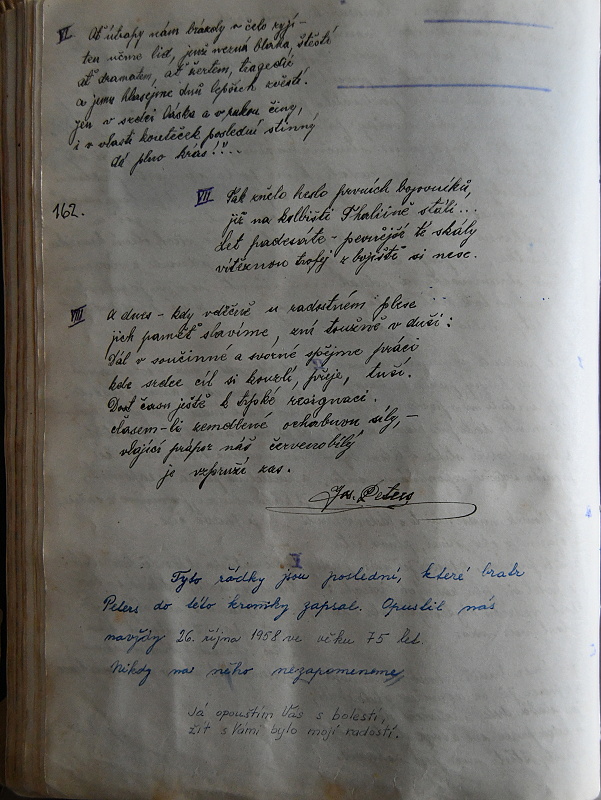 VI. Ať útrapy nám brázdy v čelo ryjí –
ten učme lid, jenž nezná blaha, štěstí
ať dramatem, ať žertem, tragedií
a jemu hlásejme dnů lepších zvěstí.
Jen v srdci láska a v rukou činy,
i v vlasti kouteček poslední stinný
dá plno krás!...
162.
VII Tak znělo heslo prvních bojovníků,
již na kolbišti Thaliině stáli...
Let padesáte – pevnější té skály
vítěznou trofej z bojiště si nese.
VIII A dnes – kdy vděčně u radostném plese
jich památ slavíme, zní toužně v duši:
Dál v součinné a svorné spějme práci
kde srdce cíl si kouzlí, přeje, tuší.
Dost času ještě k trpké resignaci.
časem-li zemdlené ochabnou síly, –
vlající prápor náš červenobílý
je vzpruží zas.
Jos. Peters
I
Tyto řádky jsou poslední, které bratr
Peters do této kroniky zapsal. Opustil nás
navždy 26. října 1958 ve věku 75 let.
Nikdy na něho nezapomeneme,
Já opouštím Vás s bolestí,
žít s Vámi bylo mojí radostí.